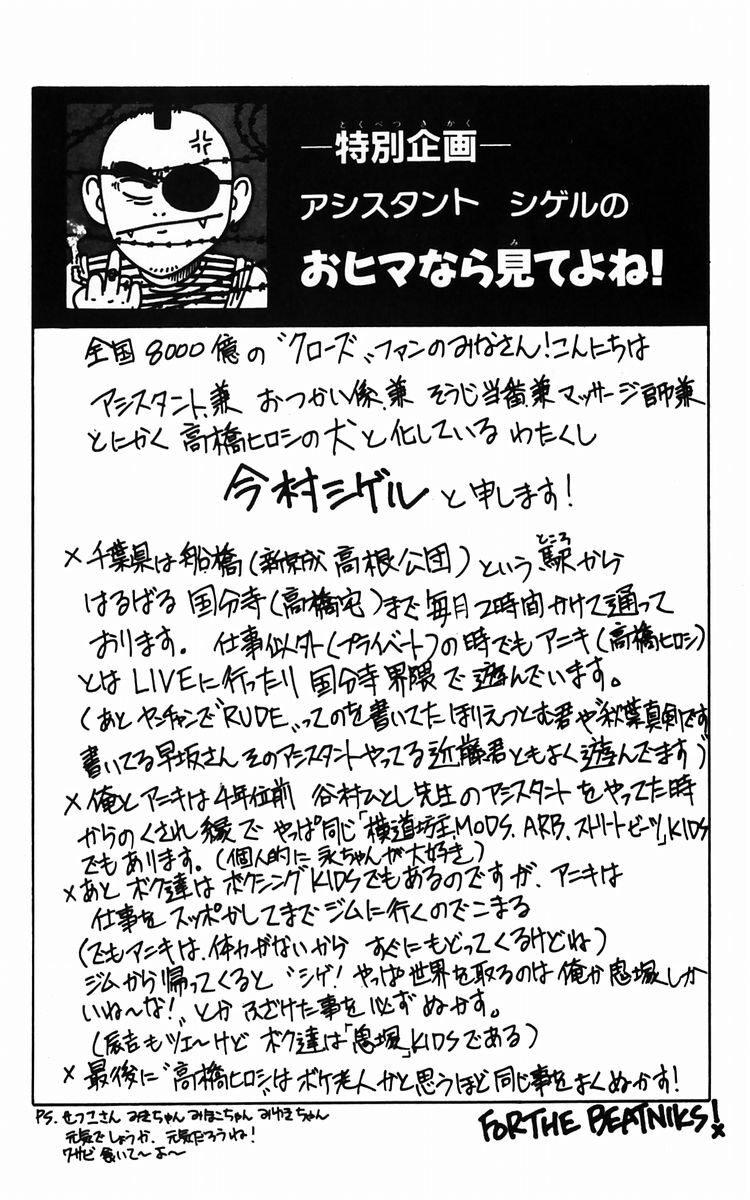 とくべつきかく
―特別企画―
アシスタント シゲルの
み
おヒマなら見てよね!
全国8000億の〝クローズ〟ファンのみなさん!こんにちは
アシスタント.兼 おつかい係.兼 そうじ当番.兼 マッサージ師兼
とにかく 高橋ヒロシの犬と化している わたくし
今村シゲル と申します!
ところ
×千葉県は船橋(新京成 高根公団)という 駅から
はるばる 国分寺(高橋宅)まで毎月2時間かけて通って
おります。 仕事似外(プライベート)の時でも アニキ(高橋ヒロシ)
とは LIVEに行ったり 国分寺界隈で遊んでいます。
(あと ヤンチャンで〝RUDE〟ってのを書いてた ほりえつとむ君や〝秋葉真剣です〟
書いてる早坂さん そのアシスタントやってる 近藤君ともよく遊んでます)
×俺とアニキは4年位前 谷村ひとし先生のアシスタントをやってた時
からのくされ縁で やっぱ同じ「横道坊主.MODS.ARB.ストリートビーツ」KIDS
でもあります。(個人的に永ちゃんが大好き)
×あと ボク達は ボクシングKIDSでもあるのですが、アニキは
仕事をスッポかしてまでジムに行くのでこまる
(でもアニキは、体力がないから すぐにもどってくるけどね)
ジムから帰ってくると 〝シゲ! やっぱ世界を取るのは俺か鬼塚しか
いね〜な!〟とか ふざけた事を必ずぬかす。
(辰吉もツエ〜けど ボク達は「鬼塚」KIDSである)
× 最後に〝高橋ヒロシ〟はボケ老人かと思うほど同じ事をよくぬかす!
PS. せつこさん みきちゃん みほこちゃん みゆきちゃん
元気でしょうか、元気だろうね!
ワサビ 食いて〜よ〜
FOR THE BEATNIKS!